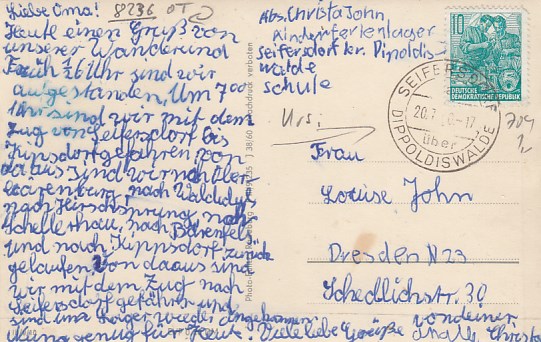 Liebe Oma!
Heute einen Gruß von
unserer Wanderung
Früh ½6 Uhr sind wir
aufgestanden, Um 7 00
Uhr sind wir mit dem
Zug von Seifersdorf bis
Kipsdorf gefahren, von
da aus sind wir nach Ober
bärenburg, nach Waldidyll
nach Hirschsprung, nach
Schellerhau, nach Bärenfels
und nach Kippsdorf zurück
gelaufen. Von da aus sind
wir mit dem Zug nach
Seifersdorf gefahren und
sind um wieder angekommen
genug für Heute! Viele liebe Grüße von deiner
Christa
8236 OT
Abs. Christa John
Kinderferienlager
Seifersdorf kr. Dipoldis
walde
Schule
10
DEUTSCHE
DEMOKRATISCHE REPUBLIK
SEIFERSDORF
20.7. -17
über
DIPPOLDISWALDE
Frau
Louise John
Dresden N23
Schedlichstr. 30
J 38/60
Nachdruck verboten